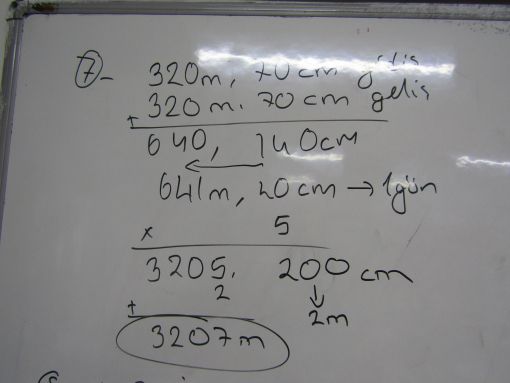 7- 320m, 70cm gidiş
+ 320m. 70cm geliş
640, 140cm
641m, 40cm → 1gün
x 5
3205, 200cm
+ 2 2m
3207m